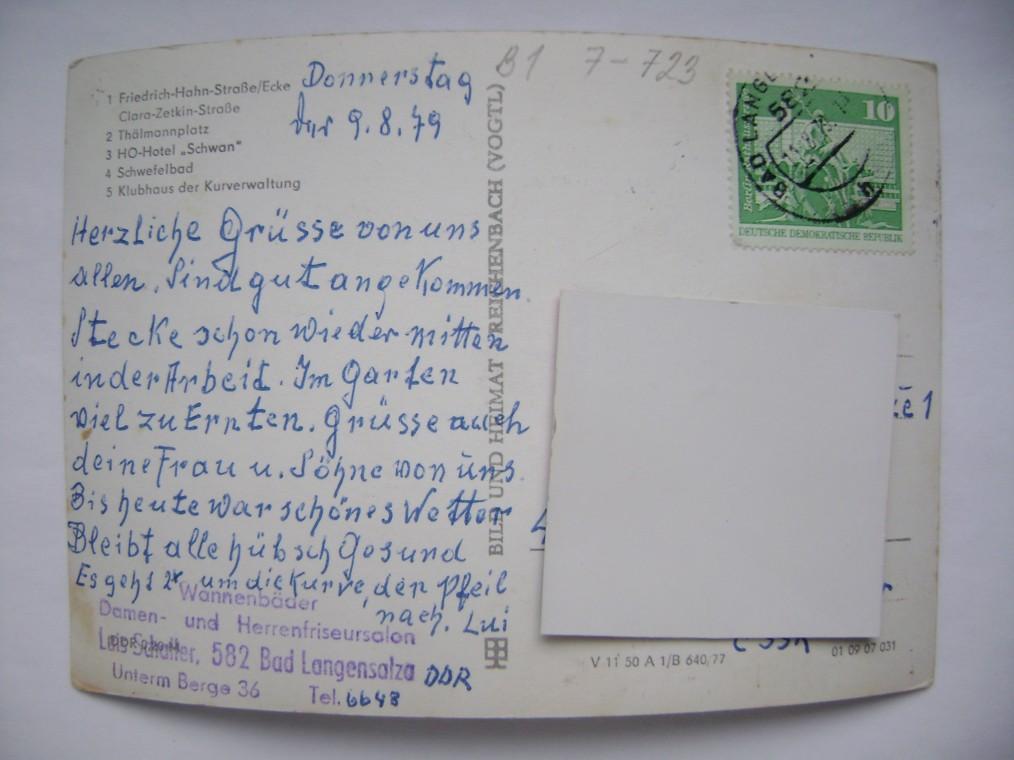 1 Friedrich-Hahn-Straße/Ecke
Clara-Zetkin-Straße
2 Thälmannplatz
3 HO-Hotel „Schwan"
4 Schwefelbad
5 Klubhaus der Kurverwaltung
Donnerstag
9.8.79
Herzliche Grüsse von uns
allen. Sind gut angekommen.
Stecke schon wieder mitten
in der Arbeit. Im Garten
viel zu Ernten. Grüsse auch
deine Frau u. Söhne von uns.
Bis heute war schönes Wetter
Bleibt alle hübsch Gesund
Es geht 2x um die Kurve, den Pfeil
nach. Lui
Wannenbäder
Damen- und Herrenfriseursalon
582 Bad Langensalza DDR
Unterm Berge 36 Tel. 6648
BILD UND HEIMAT REICHENBACH (VOGTL)
B1 7-723
10
DEUTSCHE DEMOKRATISCHE REPUBLIK
BAD LANGE
582
1
ČSSR
V 11 50 A 1/B 640/77
01 09 07 031